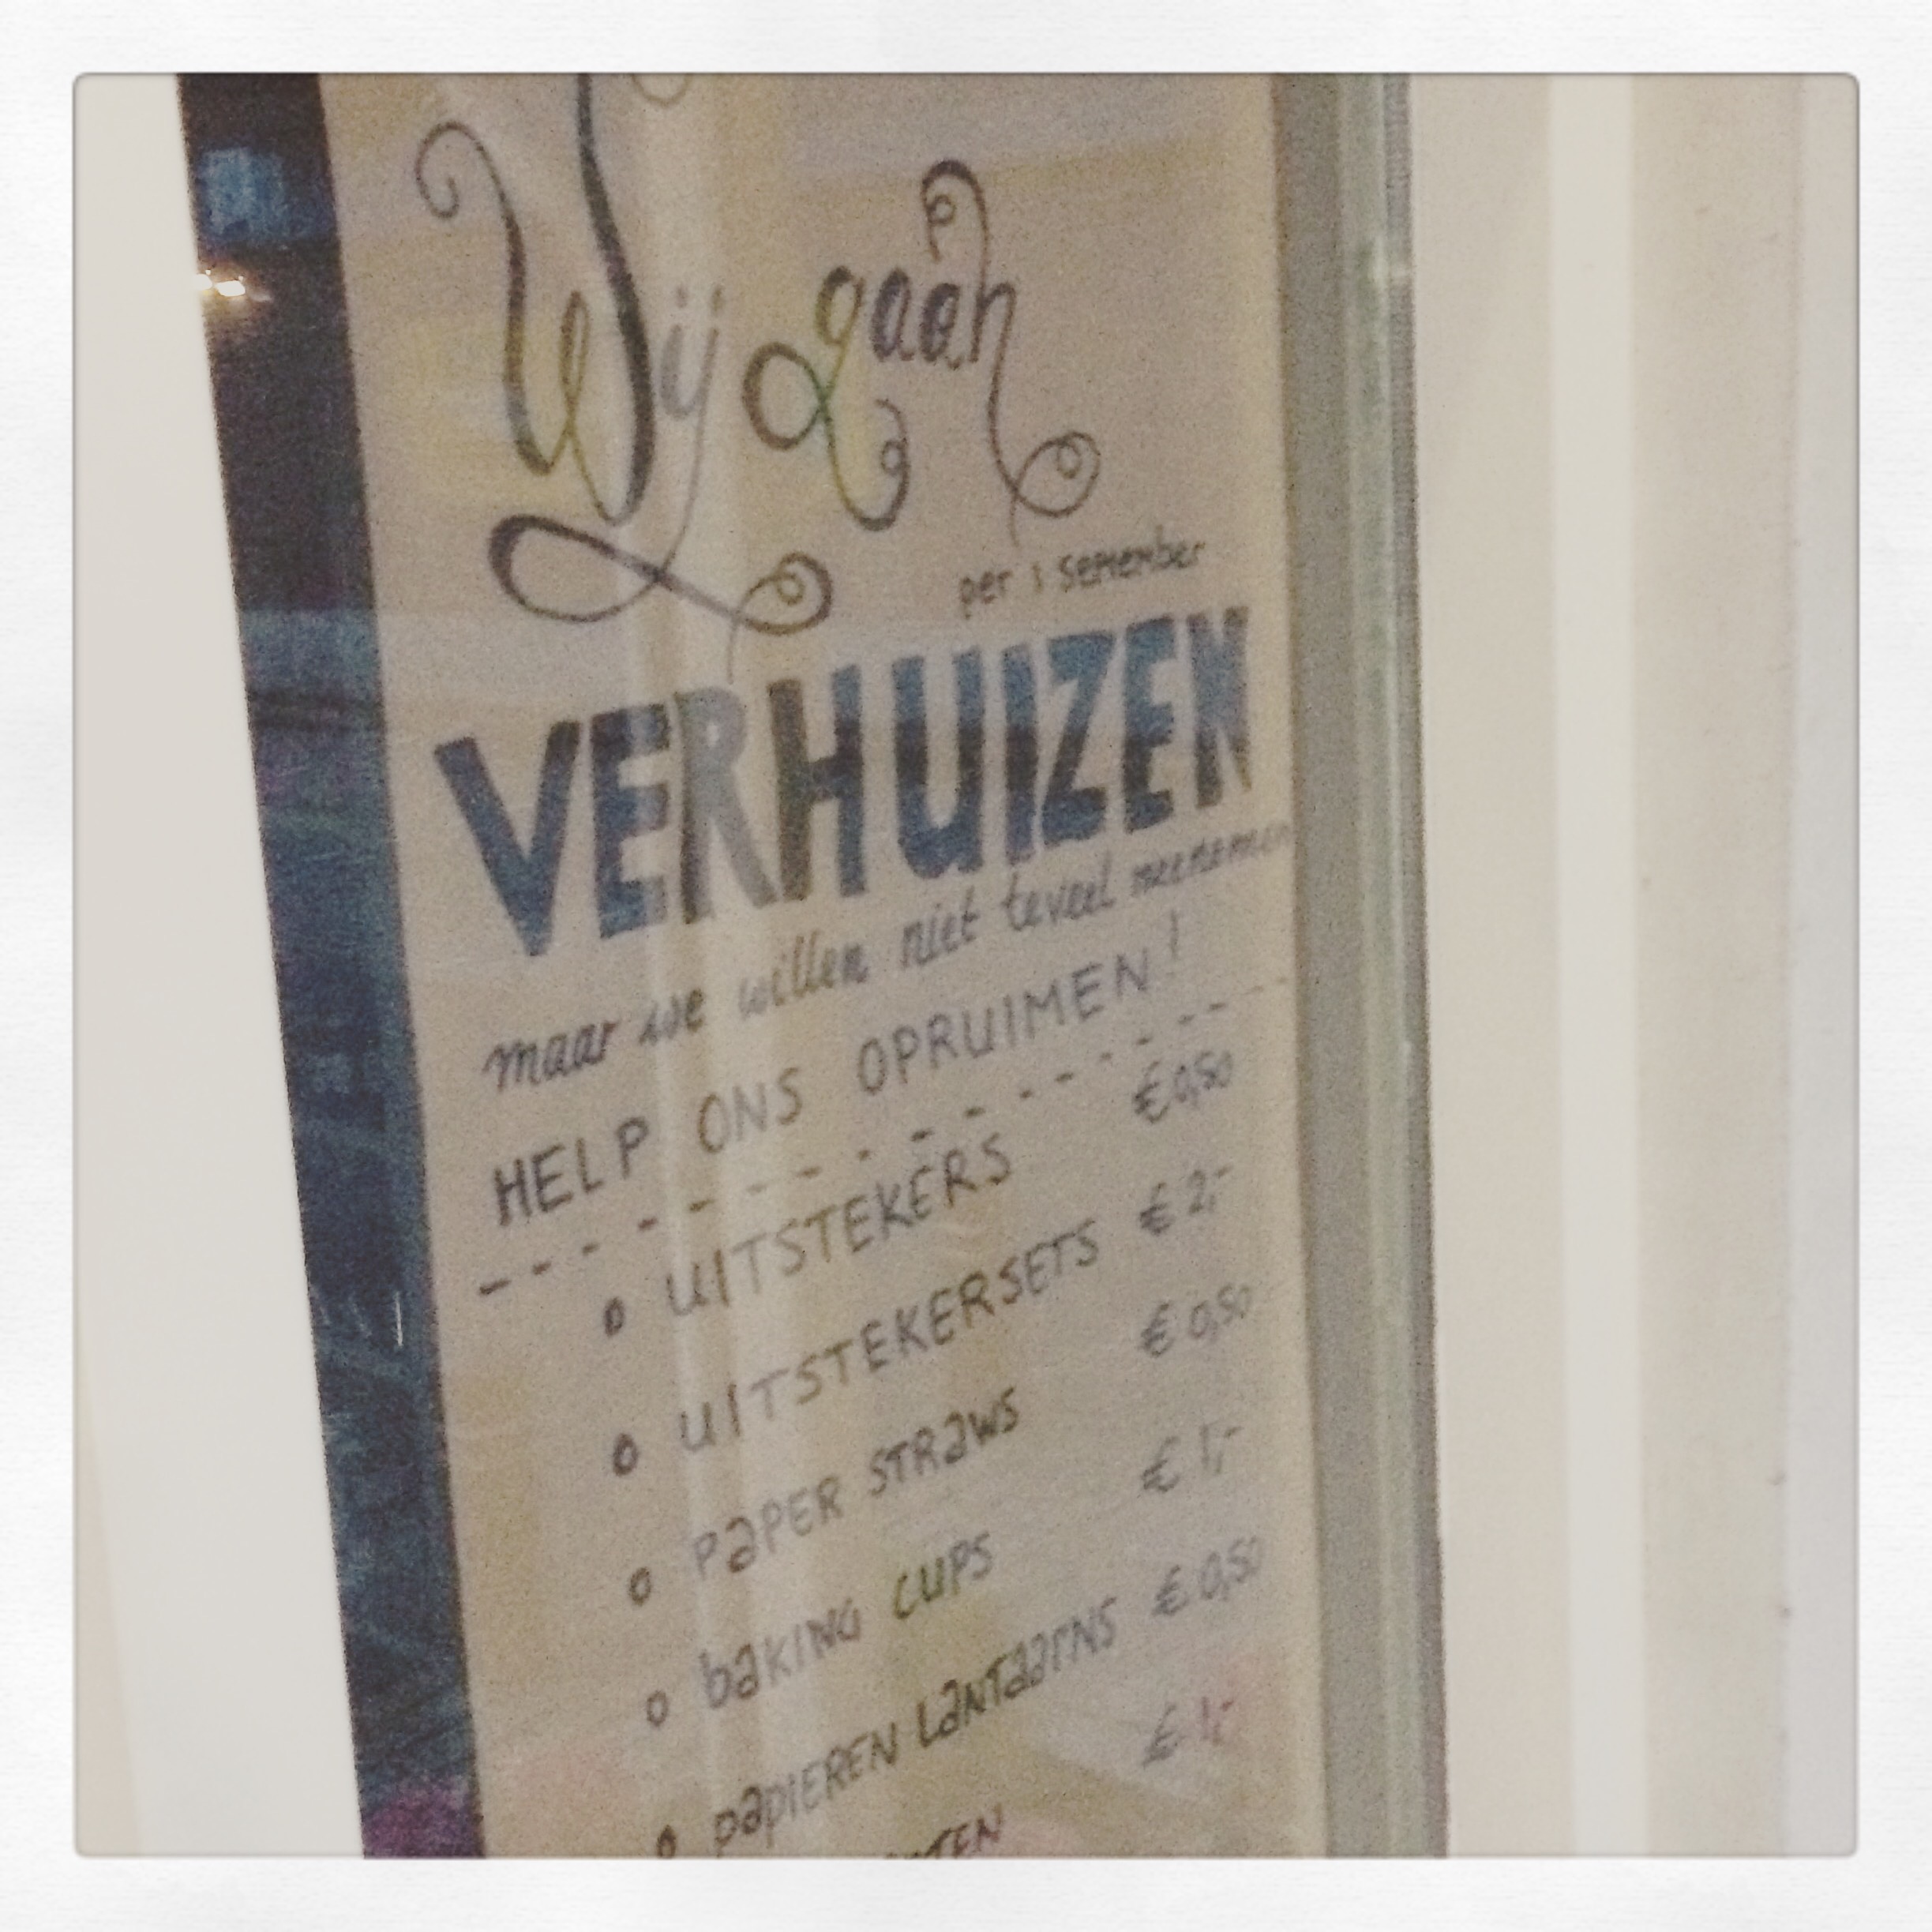 Wij gaan
per 1 september
VERHUIZEN
maar we willen niet teveel meenemen
HELP ONS OPRUIMEN!
o UITSTEKERS €0,50
o UITSTEKERSETS €2,-
o PAPER STRAWS €0,50
o baking CUPS €1,-
o PAPIEREN LANTAARNS €0,50
€1,-